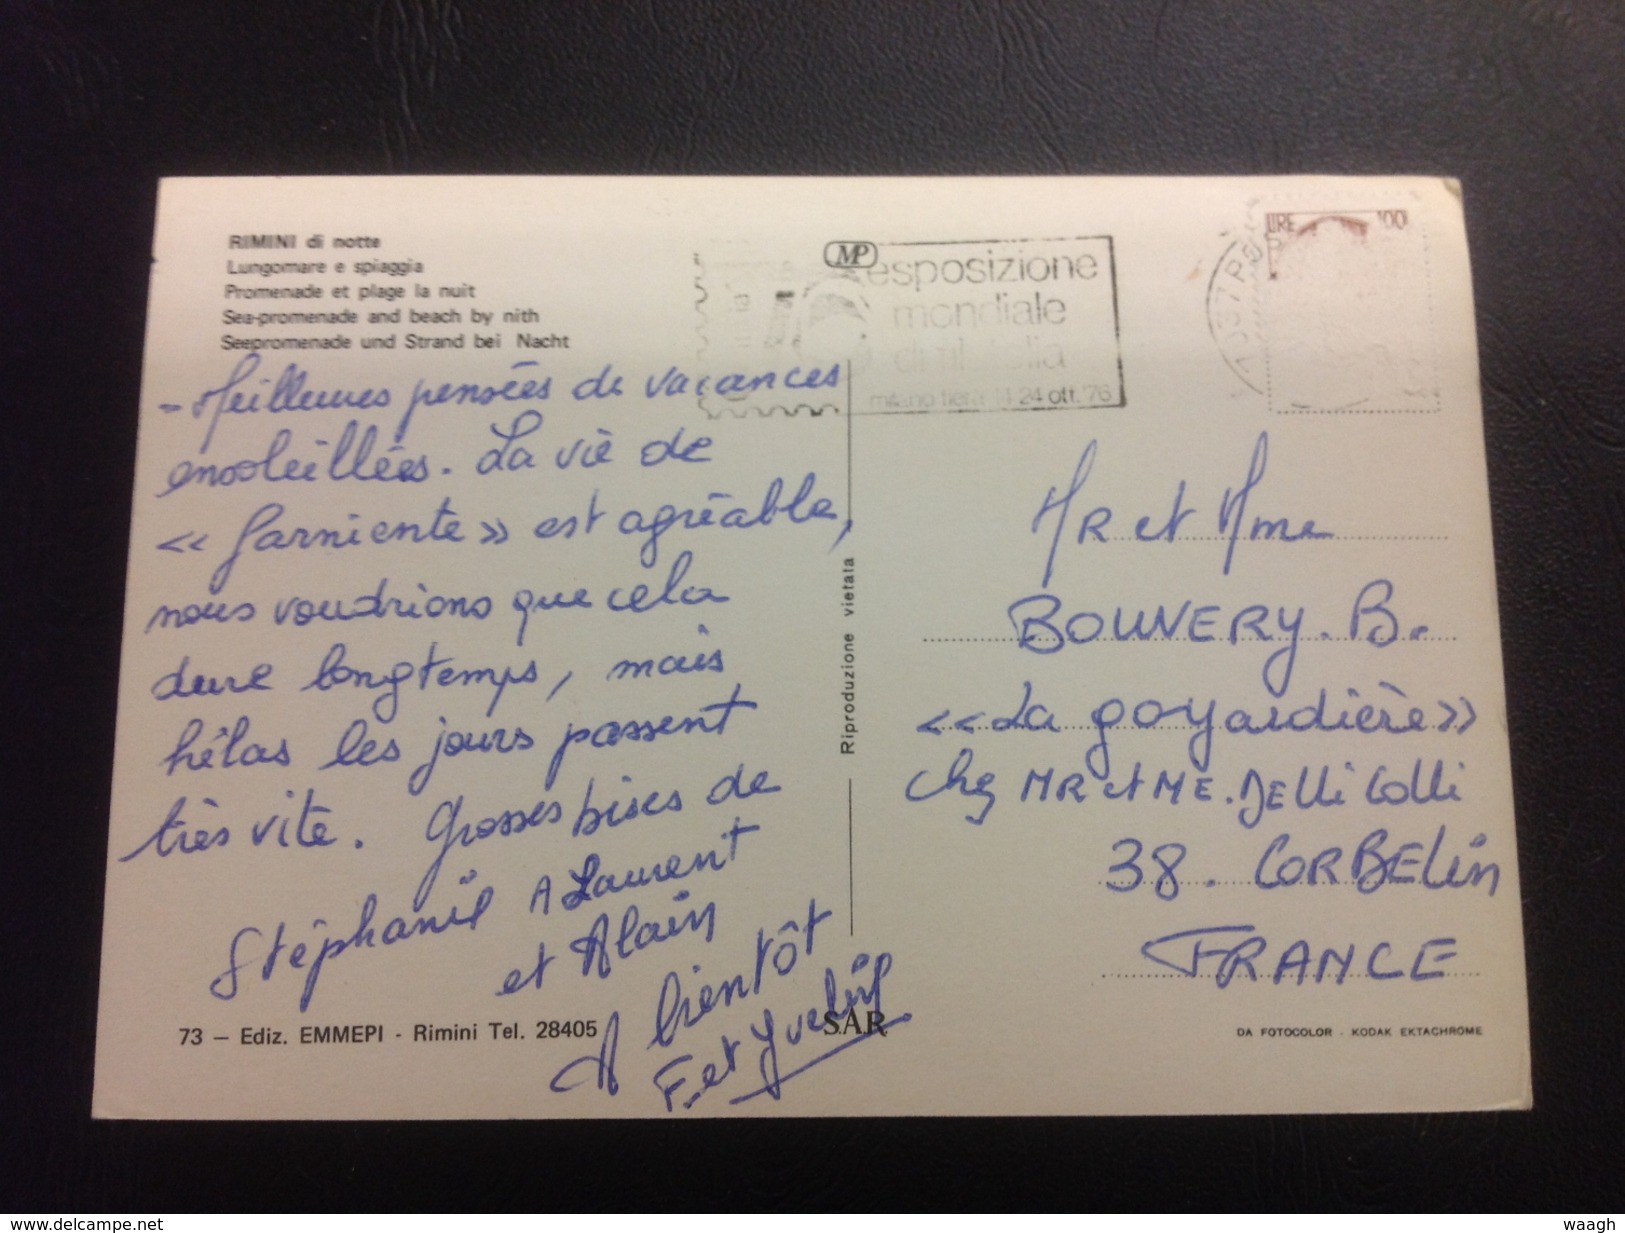 RIMINI di notte
Lungomare e spiaggia
Promenade et plage la nuit
Sea-promenade and beach by nith
Seepromenade und Strand bei Nacht
MP
esposizione
mondiale
di filatelia
milano fiera 14-24 ott. '76
LIRE 100
- Meilleures pensées de vacances
ensoleillées. La vie de
<< farniente >> est agréable,
nous voudrions que cela
dure longtemps, mais
hélas les jours passent
très vite. Grosses bises de
Stéphanie A Laurent
et Alain
A bientôt
F. et Yveline
Riproduzione vietata
MR et Mme
BOUVERY. B.
<< La goyardière >>
chez MR et ME. DElli Colli
38. CORBELin
FRANCE
73 — Ediz. EMMEPI - Rimini Tel. 28405
S.A.R
DA FOTOCOLOR - KODAK EKTACHROME
www.delcampe.net
waagh